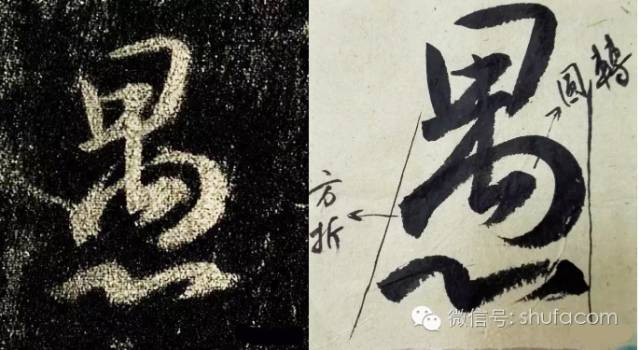 愚
愚
圆轉
方折
微信号: shufacom